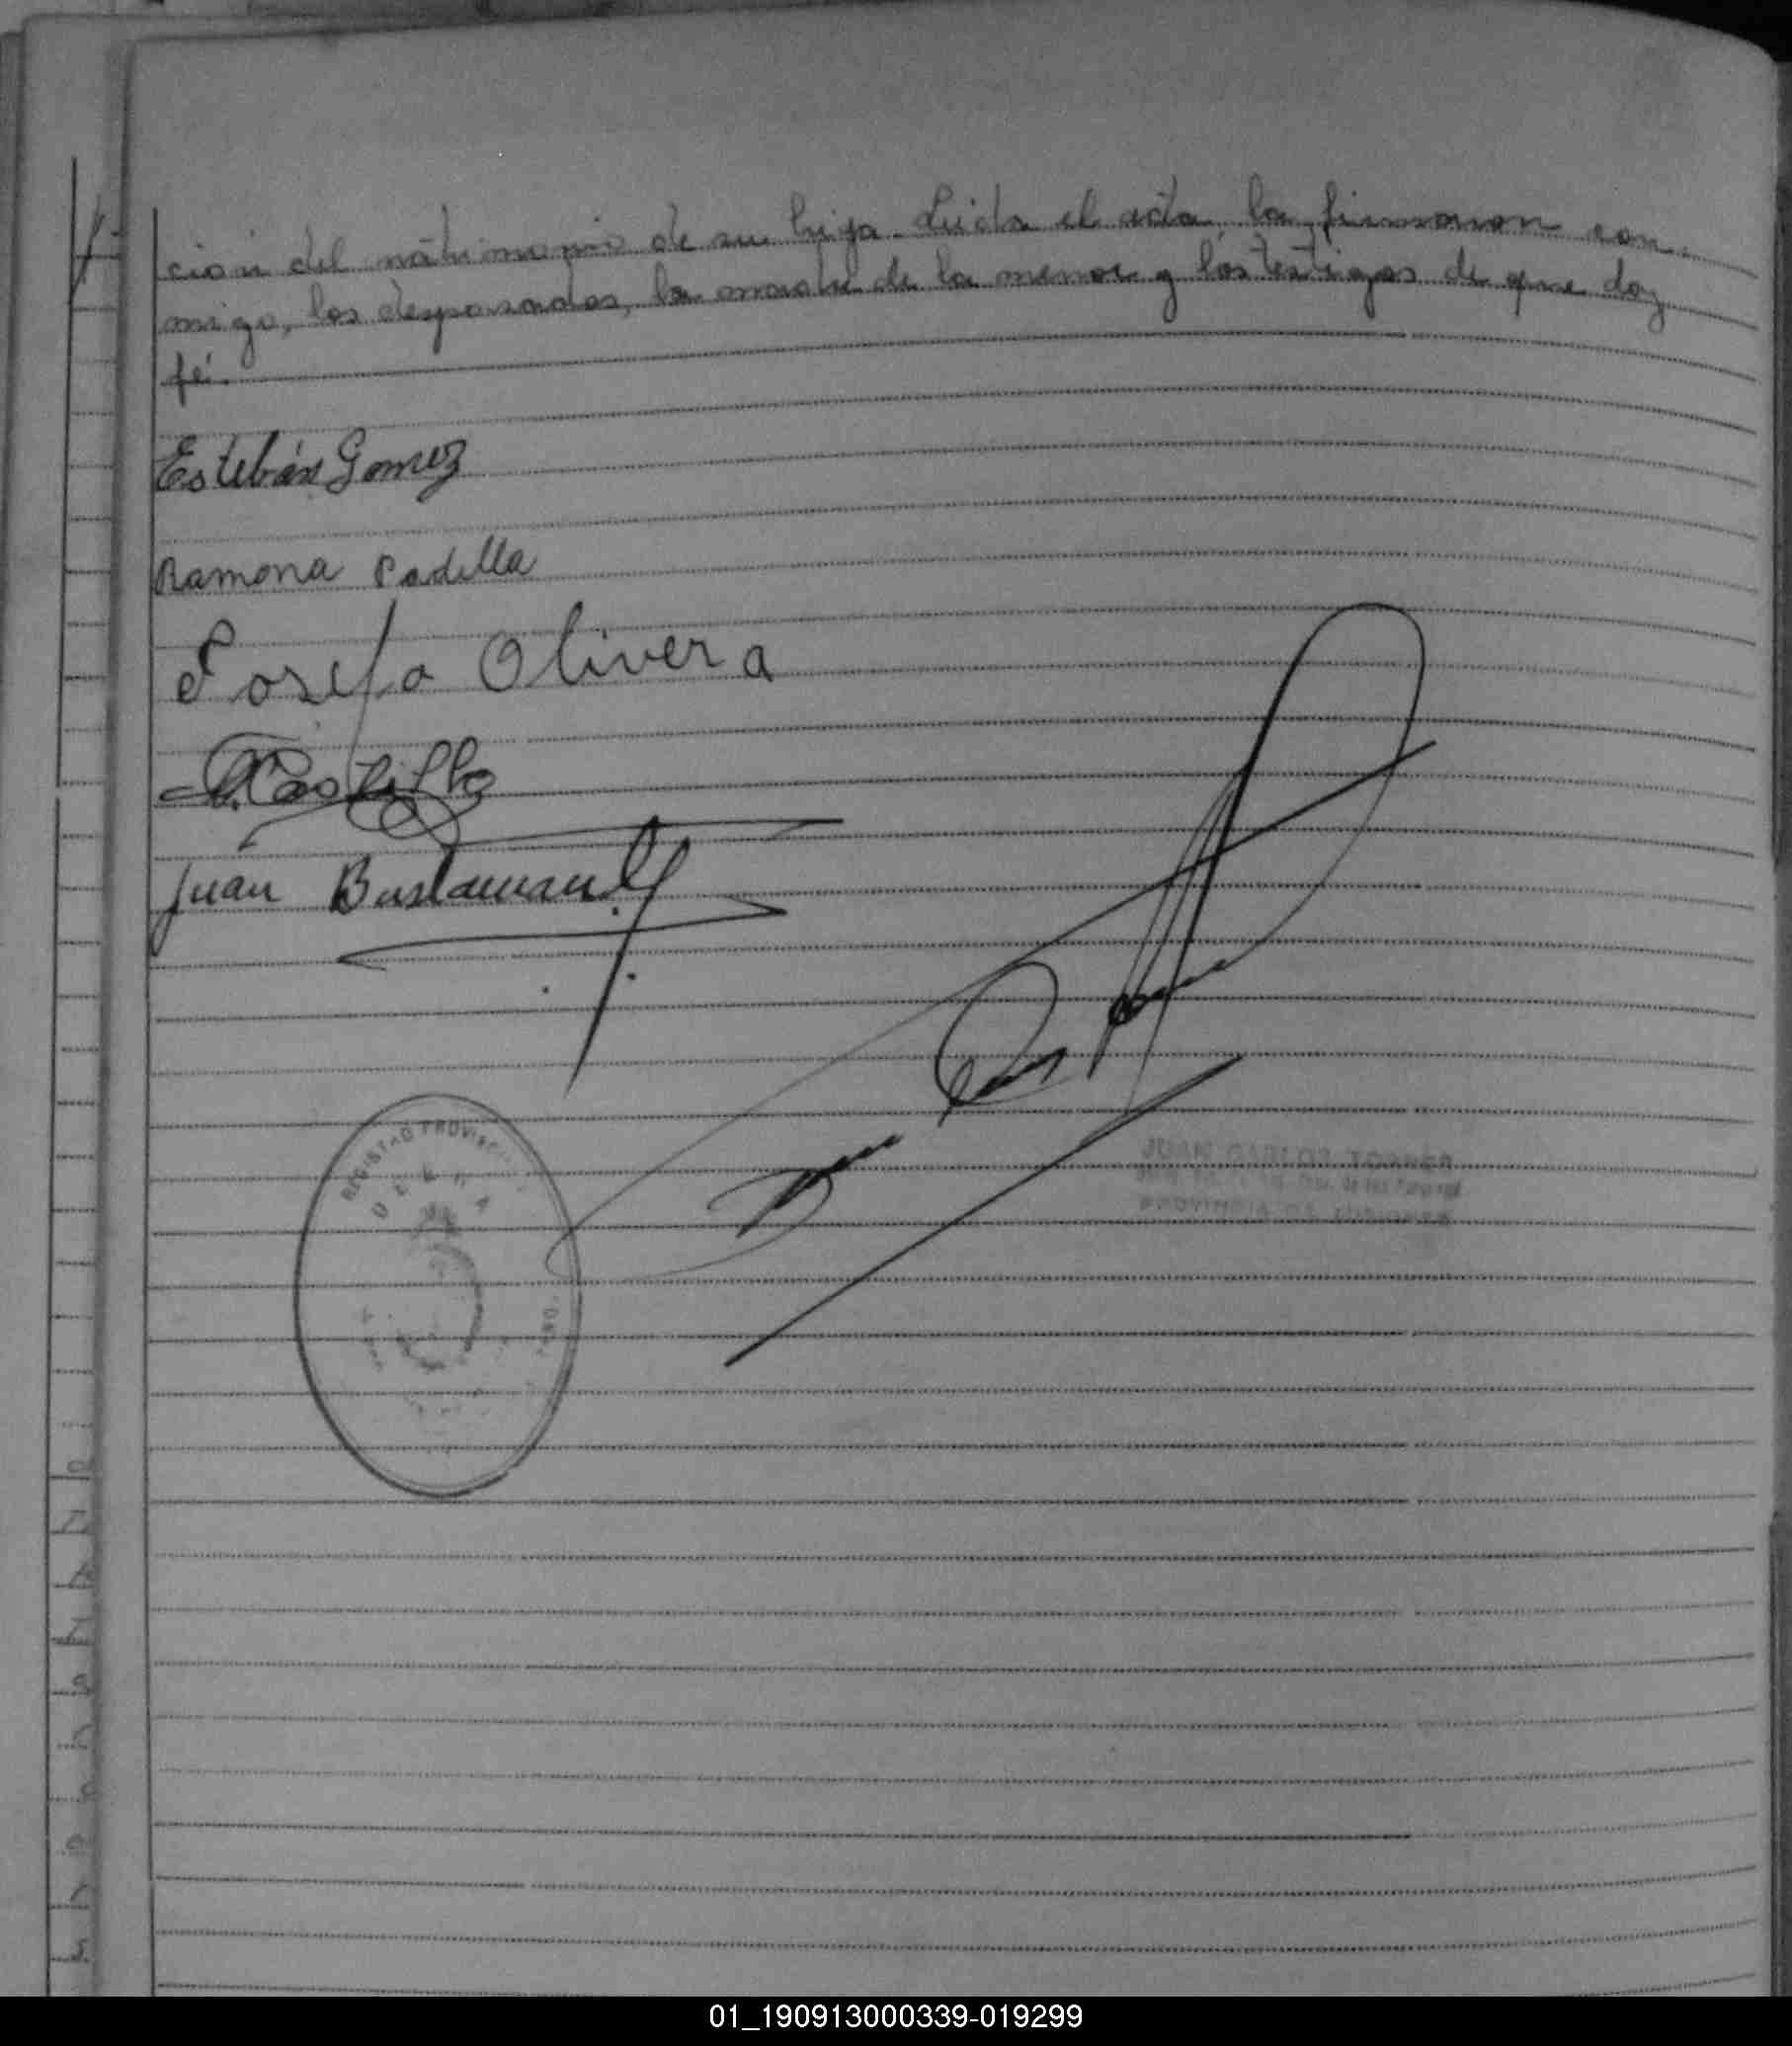 ción del matrimonio de su hija. Leída el acta, la firmaron con-
migo, los desposados, la madre de la menor y los testigos de que doy
fé.
Esteban Gomez
Ramona Padilla
Josefa Olivera
Castillo
Juan Bustamante
REGISTRO PROVINCIAL
JUAN CARLOS TORRES
de las Personas
PROVINCIA DE MISIONES
01_190913000339-019299